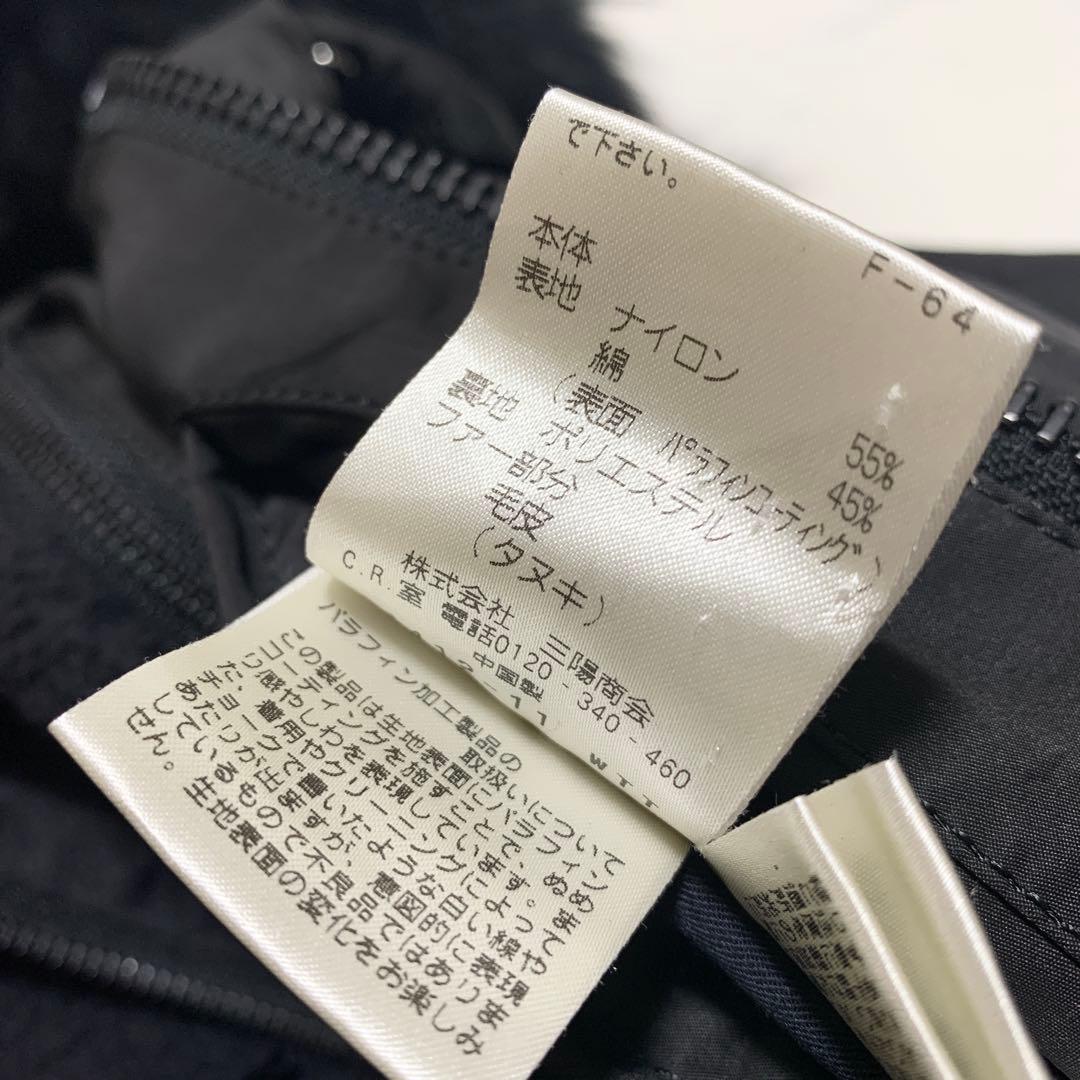 で下さい。
F-64
本体
表地 ナイロン 55%
綿 45%
(表面 パラフィンコーティング)
裏地 ポリエステル
ファー部分
毛皮
(タヌキ)
株式会社 三陽商会
C.R.室 電話0120-340-460
中国製
パラフィン加工製品の 取扱いについて
この製品は生地表面にパラフィン
コーティングを施すことで、ぬめ
り感やしわを表現しています。ま
た、着用やクリーニングによって
チョークで書いたような白い線や
あたりが出ますが、意図的に表現
しているもので不良品ではありま
せん。生地表面の変化をお楽しみ